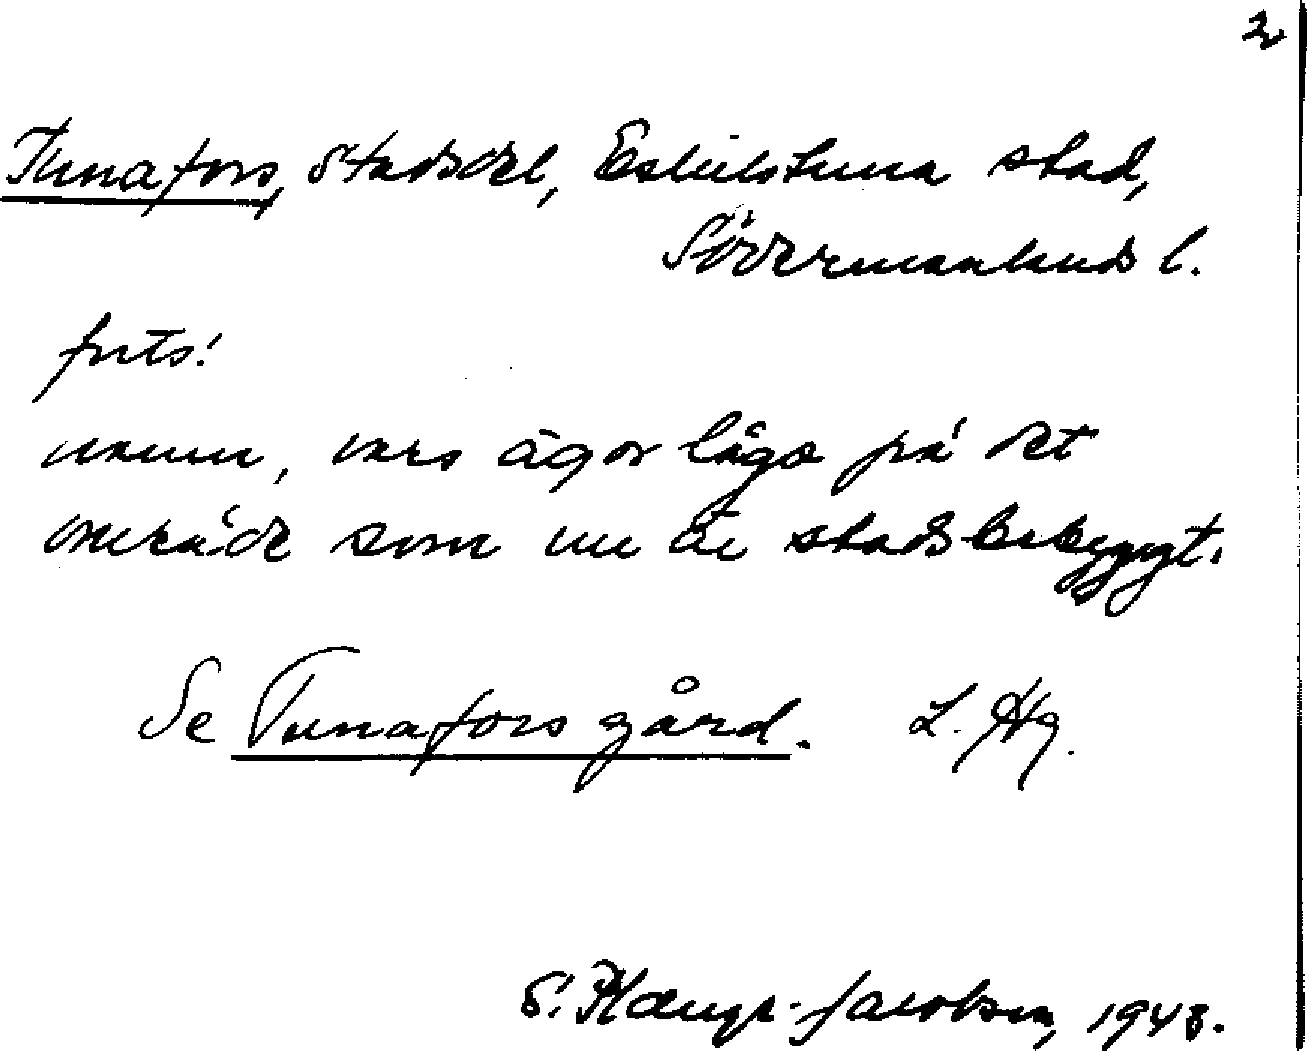 2
Tunafors, stadsdel, Eskilstuna stad,
Södermanlands l.
forts!
namn, vars ägor lågo på det
område som nu är stadsbebyggt.
Se Tunafors gård. L. Hg.
S. Jacobsen, 1948.